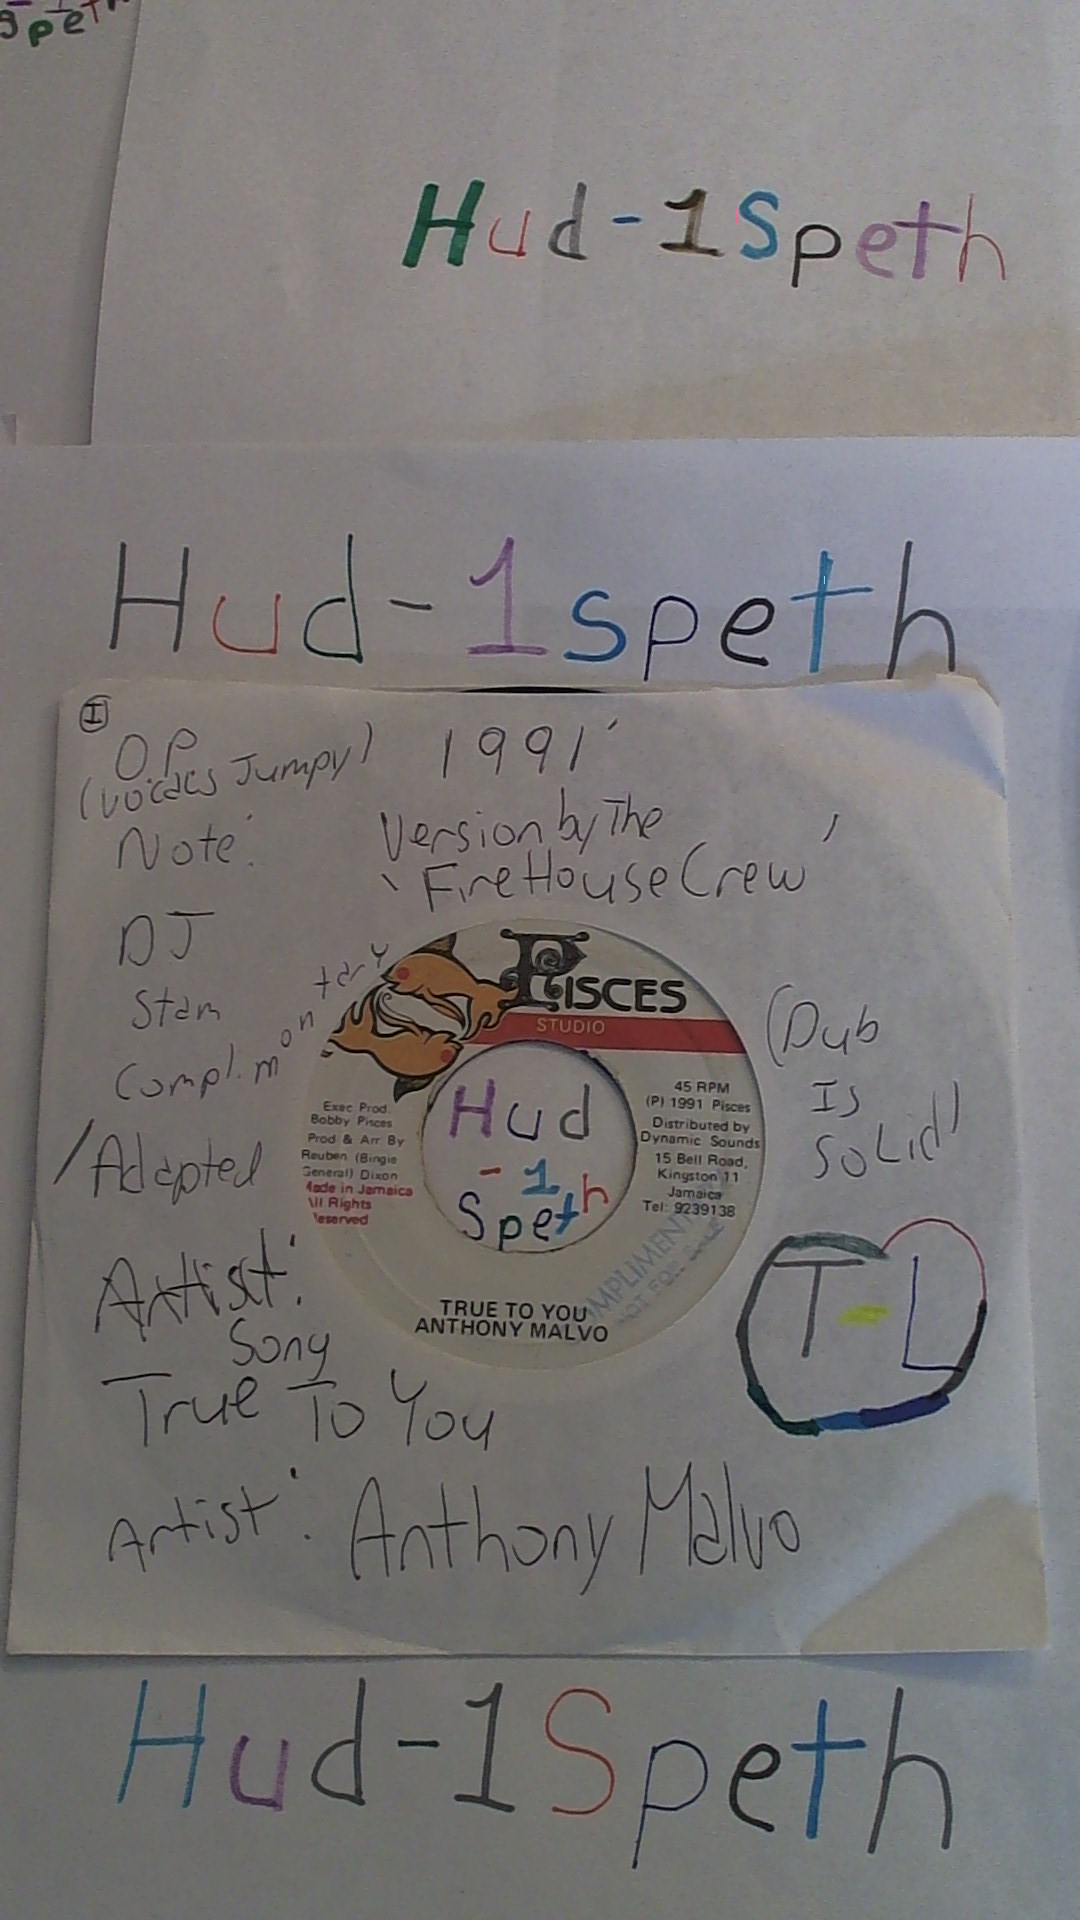 speth
Hud-1Speth
Hud-1speth
I
OP
(vocals Jumpy)
1991'
Note:
Version by The
'FireHouse Crew'
DJ
Stam
Complimontary
/Adapted
(Dub
Is
SoLid)
PISCES
STUDIO
Exec Prod.
Bobby Pisces
Prod & Arr By
Reuben (Bingie
General) Dixon
Made in Jamaica
All Rights
Reserved
45 RPM
(P) 1991 Pisces
Distributed by
Dynamic Sounds
15 Bell Road,
Kingston 11
Jamaica
Tel: 9239138
Hud
-1
Speth
NOT FOR SALE
TRUE TO YOU
ANTHONY MALVO
T-L
Artist:
Song
True To You
Artist: Anthony Malvo
Hud-1Speth